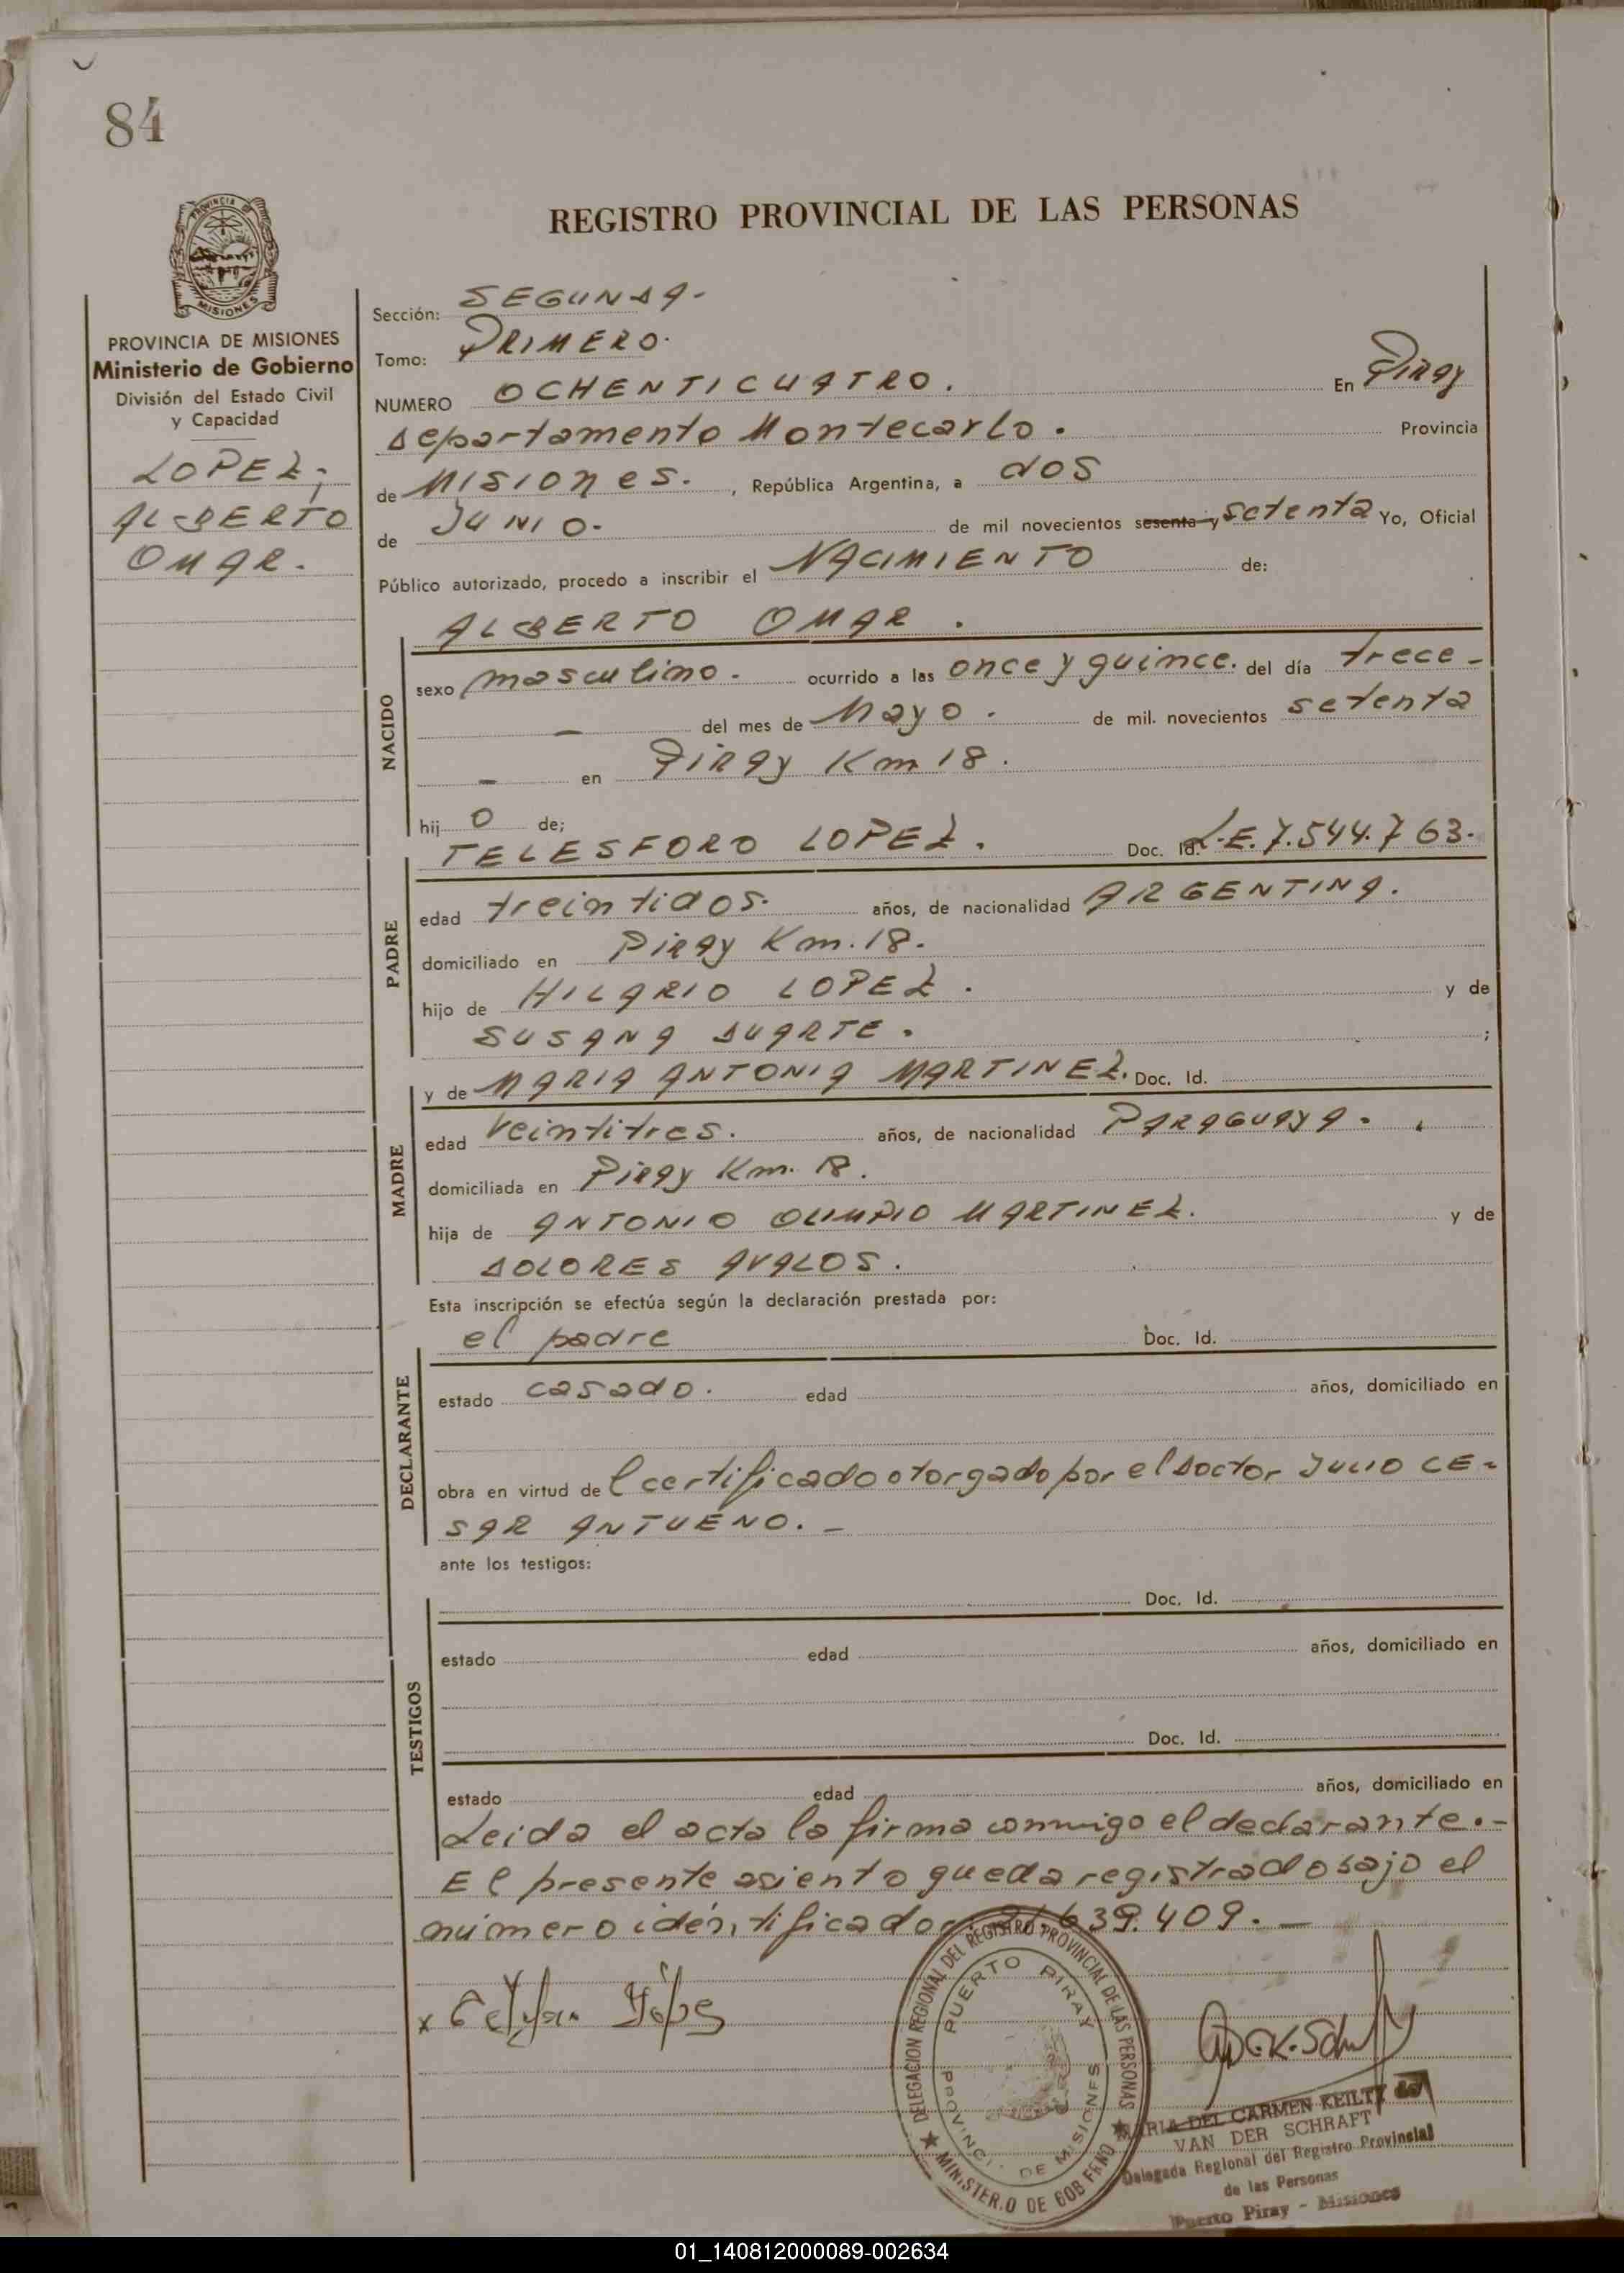 84
REGISTRO PROVINCIAL DE LAS PERSONAS
PROVINCIA DE MISIONES
Ministerio de Gobierno
División del Estado Civil
y Capacidad
LOPEZ,
ALBERTO
OMAR.
Sección: SEGUNDA-
Tomo: PRIMERO.
NUMERO OCHENTICUATRO. En Piray
Departamento Montecarlo. Provincia
de Misiones. , República Argentina, a dos
de JUNIO- de mil novecientos sesenta y setenta Yo, Oficial
Público autorizado, procedo a inscribir el NACIMIENTO de:
ALBERTO OMAR .
NACIDO
sexo masculino- ocurrido a las once y quince. del día trece-
— del mes de Mayo. de mil novecientos setenta
— en Piray Km 18.
hij o de;
TELESFORO LOPEZ. Doc. Id. L.E. 7.544.763.
PADRE
edad treintidos. años, de nacionalidad ARGENTINA.
domiciliado en Piray Km. 18.
hijo de HILARIO LOPEZ. y de
SUSANA DUARTE. ;
y de MARIA ANTONIA MARTINEZ. Doc. Id.
MADRE
edad veintitres. años, de nacionalidad PARAGUAYA.
domiciliada en Piray Km. 18.
hija de ANTONIO OLIMPIO MARTINEZ. y de
DOLORES AVALOS.
Esta inscripción se efectúa según la declaración prestada por:
el padre Doc. Id.
DECLARANTE
estado casado. edad años, domiciliado en
obra en virtud de l certificado otorgado por el Doctor JULIO CE-
SAR ANTUENO. —
ante los testigos:
Doc. Id.
TESTIGOS
estado edad años, domiciliado en
Doc. Id.
estado edad años, domiciliado en
Leida el acta la firma conmigo el declarante.-
El presente asiento queda registrado bajo el
número identificador 21.639.409. —
DELEGACION REGIONAL DEL REGISTRO PROVINCIAL DE LAS PERSONAS
PUERTO PIRAY
DE MISIONES
MARIA DEL CARMEN KEILTY de
VAN DER SCHRAFT
Delegada Regional del Registro Provincial
de las Personas
Puerto Piray - Misiones
01_140812000089-002634